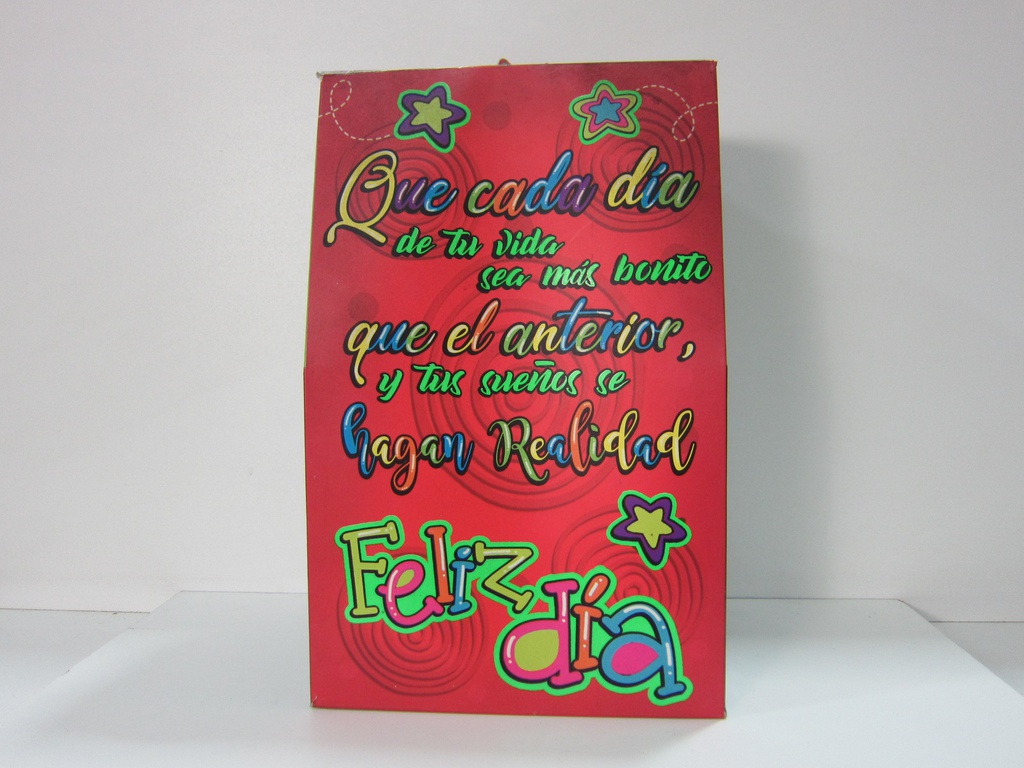 Que cada día
de tu vida
sea más bonito
que el anterior,
y tus sueños se
hagan Realidad
Feliz
día